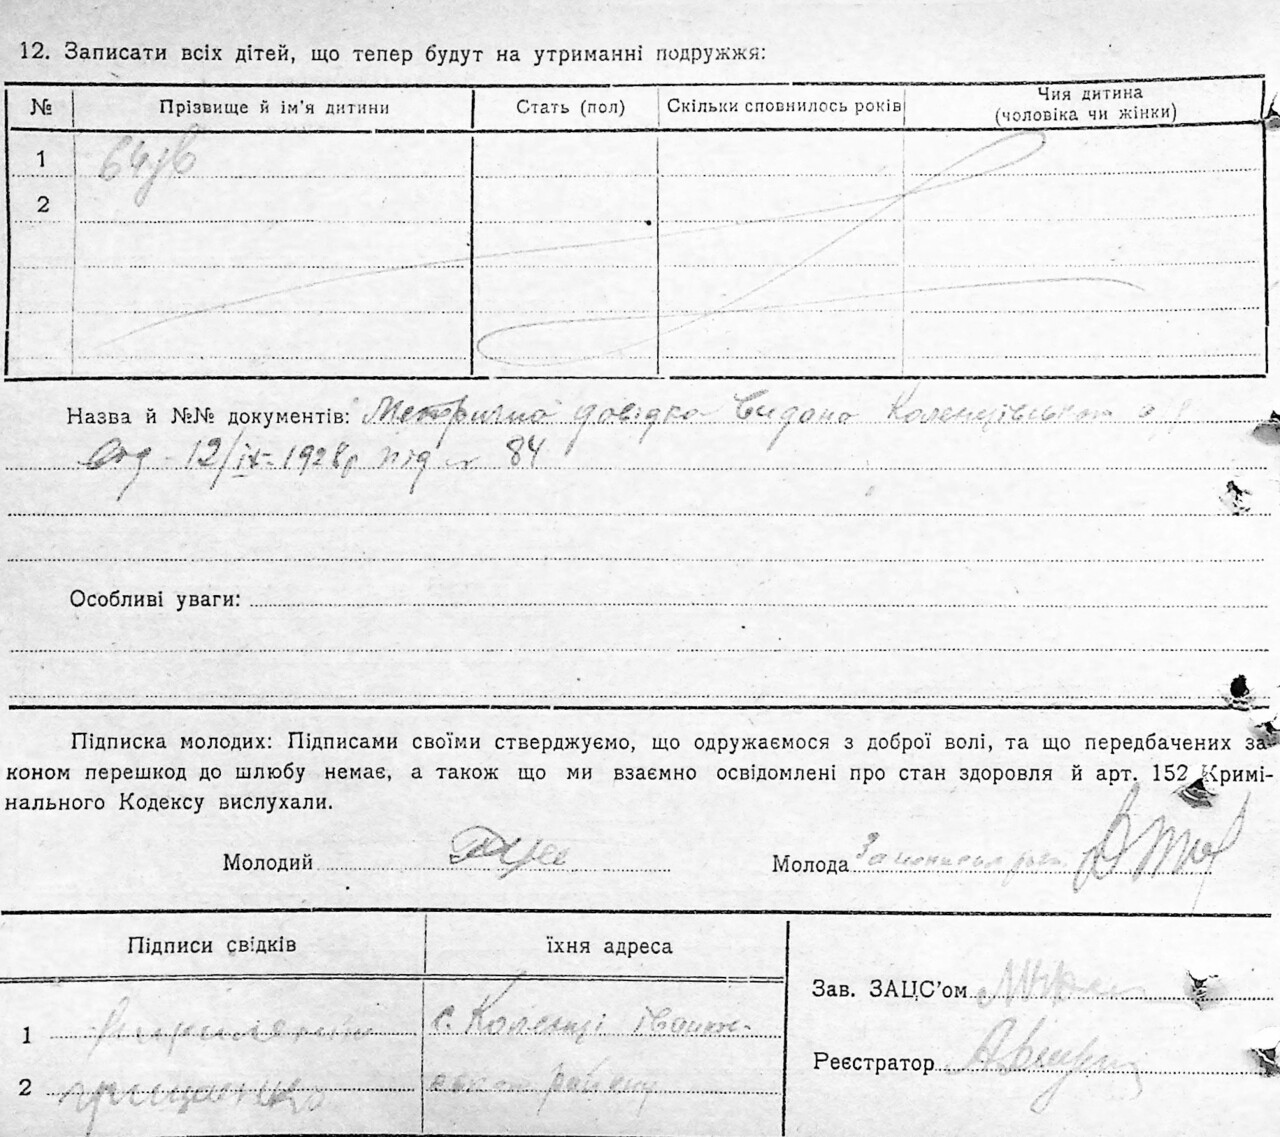 12. Записати всіх дітей, що тепер будут на утриманні подружжя:
№ Прізвище й ім'я дитини Стать (пол) Скільки сповнилось років Чия дитина
(чоловіка чи жінки)
1
2
Назва й №№ документів: Метрична довідка видана
від 12/ІХ-1928р під № 84
Особливі уваги:
Підписка молодих: Підписами своїми стверджуємо, що одружаємося з доброї волі, та що передбачених за-
коном перешкод до шлюбу немає, а також що ми взаємно освідомлені про стан здоровля й арт. 152 Кримі-
нального Кодексу вислухали.
Молодий
Молода
Підписи свідків їхня адреса
Зав. ЗАЦС'ом
1 с. Коленці
Реєстратор
2 району